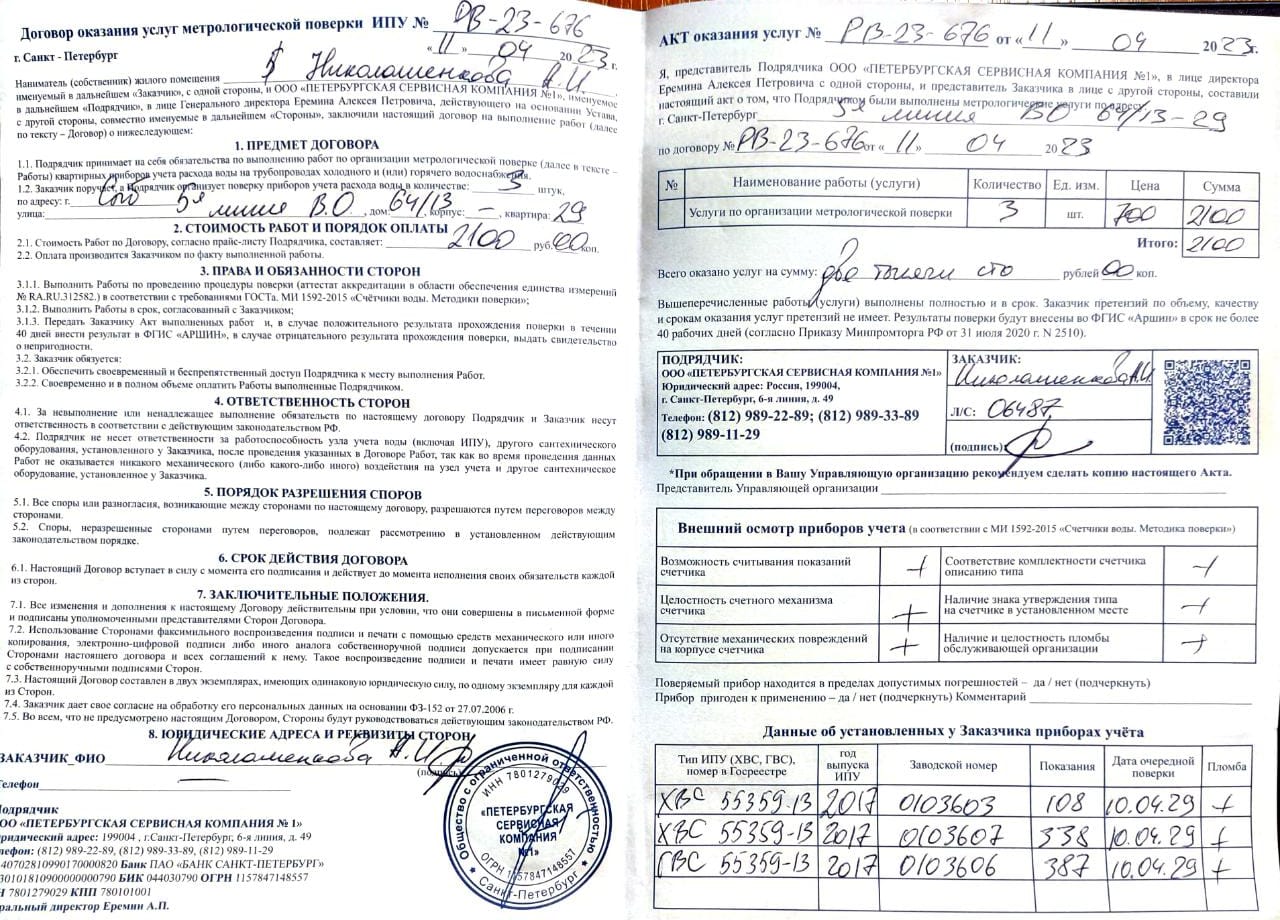 Договор оказания услуг метрологической поверки ИПУ № РВ-23-676
г. Санкт - Петербург
«11» 04 2023 г.
Наниматель (собственник) жилого помещения Николашенкова А.И.,
именуемый в дальнейшем «Заказчик», с одной стороны, и ООО «ПЕТЕРБУРГСКАЯ СЕРВИСНАЯ КОМПАНИЯ №1», именуемое
в дальнейшем «Подрядчик», в лице Генерального директора Еремина Алексея Петровича, действующего на основании Устава,
с другой стороны, совместно именуемые в дальнейшем «Стороны», заключили настоящий договор на выполнение работ (далее
по тексту – Договор) о нижеследующем:
1. ПРЕДМЕТ ДОГОВОРА
1.1. Подрядчик принимает на себя обязательства по выполнению работ по организации метрологической поверке (далее в тексте –
Работы) квартирных приборов учета расхода воды на трубопроводах холодного и (или) горячего водоснабжения.
1.2. Заказчик поручает, а Подрядчик организует поверку приборов учета расхода воды в количестве: 3 штук,
по адресу: г. СПб
улица: 5я линия В.О. , дом: 64/13 , корпус: – , квартира: 29
2. СТОИМОСТЬ РАБОТ И ПОРЯДОК ОПЛАТЫ
2.1. Стоимость Работ по Договору, согласно прайс-листу Подрядчика, составляет: 2100 руб. 00 коп.
2.2. Оплата производится Заказчиком по факту выполненной работы.
3. ПРАВА И ОБЯЗАННОСТИ СТОРОН
3.1.1. Выполнить Работы по проведению процедуры поверки (аттестат аккредитации в области обеспечения единства измерений
№ RA.RU.312582.) в соответствии с требованиями ГОСТа. МИ 1592-2015 «Счётчики воды. Методики поверки»;
3.1.2. Выполнить Работы в срок, согласованный с Заказчиком;
3.1.3. Передать Заказчику Акт выполненных работ и, в случае положительного результата прохождения поверки в течении
40 дней внести результат в ФГИС «АРШИН», в случае отрицательного результата прохождения поверки, выдать свидетельство
о непригодности.
3.2. Заказчик обязуется:
3.2.1. Обеспечить своевременный и беспрепятственный доступ Подрядчика к месту выполнения Работ.
3.2.2. Своевременно и в полном объеме оплатить Работы выполненные Подрядчиком.
4. ОТВЕТСТВЕННОСТЬ СТОРОН
4.1. За невыполнение или ненадлежащее выполнение обязательств по настоящему договору Подрядчик и Заказчик несут
ответственность в соответствии с действующим законодательством РФ.
4.2. Подрядчик не несет ответственности за работоспособность узла учета воды (включая ИПУ), другого сантехнического
оборудования, установленного у Заказчика, после проведения указанных в Договоре Работ, так как во время проведения данных
Работ не оказывается никакого механического (либо какого-либо иного) воздействия на узел учета и другое сантехническое
оборудование, установленное у Заказчика.
5. ПОРЯДОК РАЗРЕШЕНИЯ СПОРОВ
5.1. Все споры или разногласия, возникающие между сторонами по настоящему договору, разрешаются путем переговоров между
сторонами.
5.2. Споры, неразрешенные сторонами путем переговоров, подлежат рассмотрению в установленном действующим
законодательством порядке.
6. СРОК ДЕЙСТВИЯ ДОГОВОРА
6.1. Настоящий Договор вступает в силу с момента его подписания и действует до момента исполнения своих обязательств каждой
из сторон.
7. ЗАКЛЮЧИТЕЛЬНЫЕ ПОЛОЖЕНИЯ.
7.1. Все изменения и дополнения к настоящему Договору действительны при условии, что они совершены в письменной форме
и подписаны уполномоченными представителями Сторон Договора.
7.2. Использование Сторонами факсимильного воспроизведения подписи и печати с помощью средств механического или иного
копирования, электронно-цифровой подписи либо иного аналога собственноручной подписи допускается при подписании
Сторонами настоящего договора и всех соглашений к нему. Такое воспроизведение подписи и печати имеет равную силу
с собственноручными подписями Сторон.
7.3. Настоящий Договор составлен в двух экземплярах, имеющих одинаковую юридическую силу, по одному экземпляру для каждой
из Сторон.
7.4. Заказчик дает свое согласие на обработку его персональных данных на основании ФЗ-152 от 27.07.2006 г.
7.5. Во всем, что не предусмотрено настоящим Договором, Стороны будут руководствоваться действующим законодательством РФ.
8. ЮРИДИЧЕСКИЕ АДРЕСА И РЕКВИЗИТЫ СТОРОН
ЗАКАЗЧИК_ФИО Николашенкова А.И.
(подпись)
Телефон
Подрядчик
ООО «ПЕТЕРБУРГСКАЯ СЕРВИСНАЯ КОМПАНИЯ № 1»
ридический адрес: 199004 , г.Санкт-Петербург, 6-я линия, д. 49
лефон: (812) 989-22-89, (812) 989-33-89, (812) 989-11-29
40702810990170000820 Банк ПАО «БАНК САНКТ-ПЕТЕРБУРГ»
30101810900000000790 БИК 044030790 ОГРН 1157847148557
Н 7801279029 КПП 780101001
ральный директор Еремин А.П.
Общество с ограниченной ответственностью
ИНН 7801279029
«ПЕТЕРБУРГСКАЯ
СЕРВИСНАЯ
КОМПАНИЯ
№1»
ОГРН 1157847148557
Санкт-Петербург
АКТ оказания услуг № РВ-23-676 от «11» 04 2023г.
Я, представитель Подрядчика ООО «ПЕТЕРБУРГСКАЯ СЕРВИСНАЯ КОМПАНИЯ №1», в лице директора
Еремина Алексея Петровича с одной стороны, и представитель Заказчика в лице с другой стороны, составили
настоящий акт о том, что Подрядчиком были выполнены метрологические услуги по адресу:
г. Санкт-Петербург 5я линия ВО 64/13-29
по договору № РВ-23-676 от «11» 04 2023
№ Наименование работы (услуги) Количество Ед. изм. Цена Сумма
Услуги по организации метрологической поверки 3 шт. 700 2100
Итого: 2100
Всего оказано услуг на сумму: две тысячи сто рублей 00 коп.
Вышеперечисленные работы (услуги) выполнены полностью и в срок. Заказчик претензий по объему, качеству
и срокам оказания услуг претензий не имеет. Результаты поверки будут внесены во ФГИС «Аршин» в срок не более
40 рабочих дней (согласно Приказу Минпромторга РФ от 31 июля 2020 г. N 2510).
ПОДРЯДЧИК:
ООО «ПЕТЕРБУРГСКАЯ СЕРВИСНАЯ КОМПАНИЯ №1»
Юридический адрес: Россия, 199004,
г. Санкт-Петербург, 6-я линия, д. 49
Телефон: (812) 989-22-89; (812) 989-33-89
(812) 989-11-29
ЗАКАЗЧИК:
Николашенкова А.И.
Л/С: 06487
(подпись)
*При обращении в Вашу Управляющую организацию рекомендуем сделать копию настоящего Акта.
Представитель Управляющей организации
Внешний осмотр приборов учета (в соответствии с МИ 1592-2015 «Счетчики воды. Методика поверки»)
Возможность считывания показаний счетчика + Соответствие комплектности счетчика описанию типа +
Целостность счетного механизма счетчика + Наличие знака утверждения типа на счетчике в установленном месте +
Отсутствие механических повреждений на корпусе счетчика + Наличие и целостность пломбы обслуживающей организации +
Поверяемый прибор находится в пределах допустимых погрешностей – да / нет (подчеркнуть)
Прибор пригоден к применению – да / нет (подчеркнуть) Комментарий
Данные об установленных у Заказчика приборах учёта
Тип ИПУ (ХВС, ГВС), номер в Госреестре год выпуска ИПУ Заводской номер Показания Дата очередной поверки Пломба
ХВС 55359-13 2017 0103603 108 10.04.29 +
ХВС 55359-13 2017 0103607 338 10.04.29 +
ГВС 55359-13 2017 0103606 387 10.04.29 +